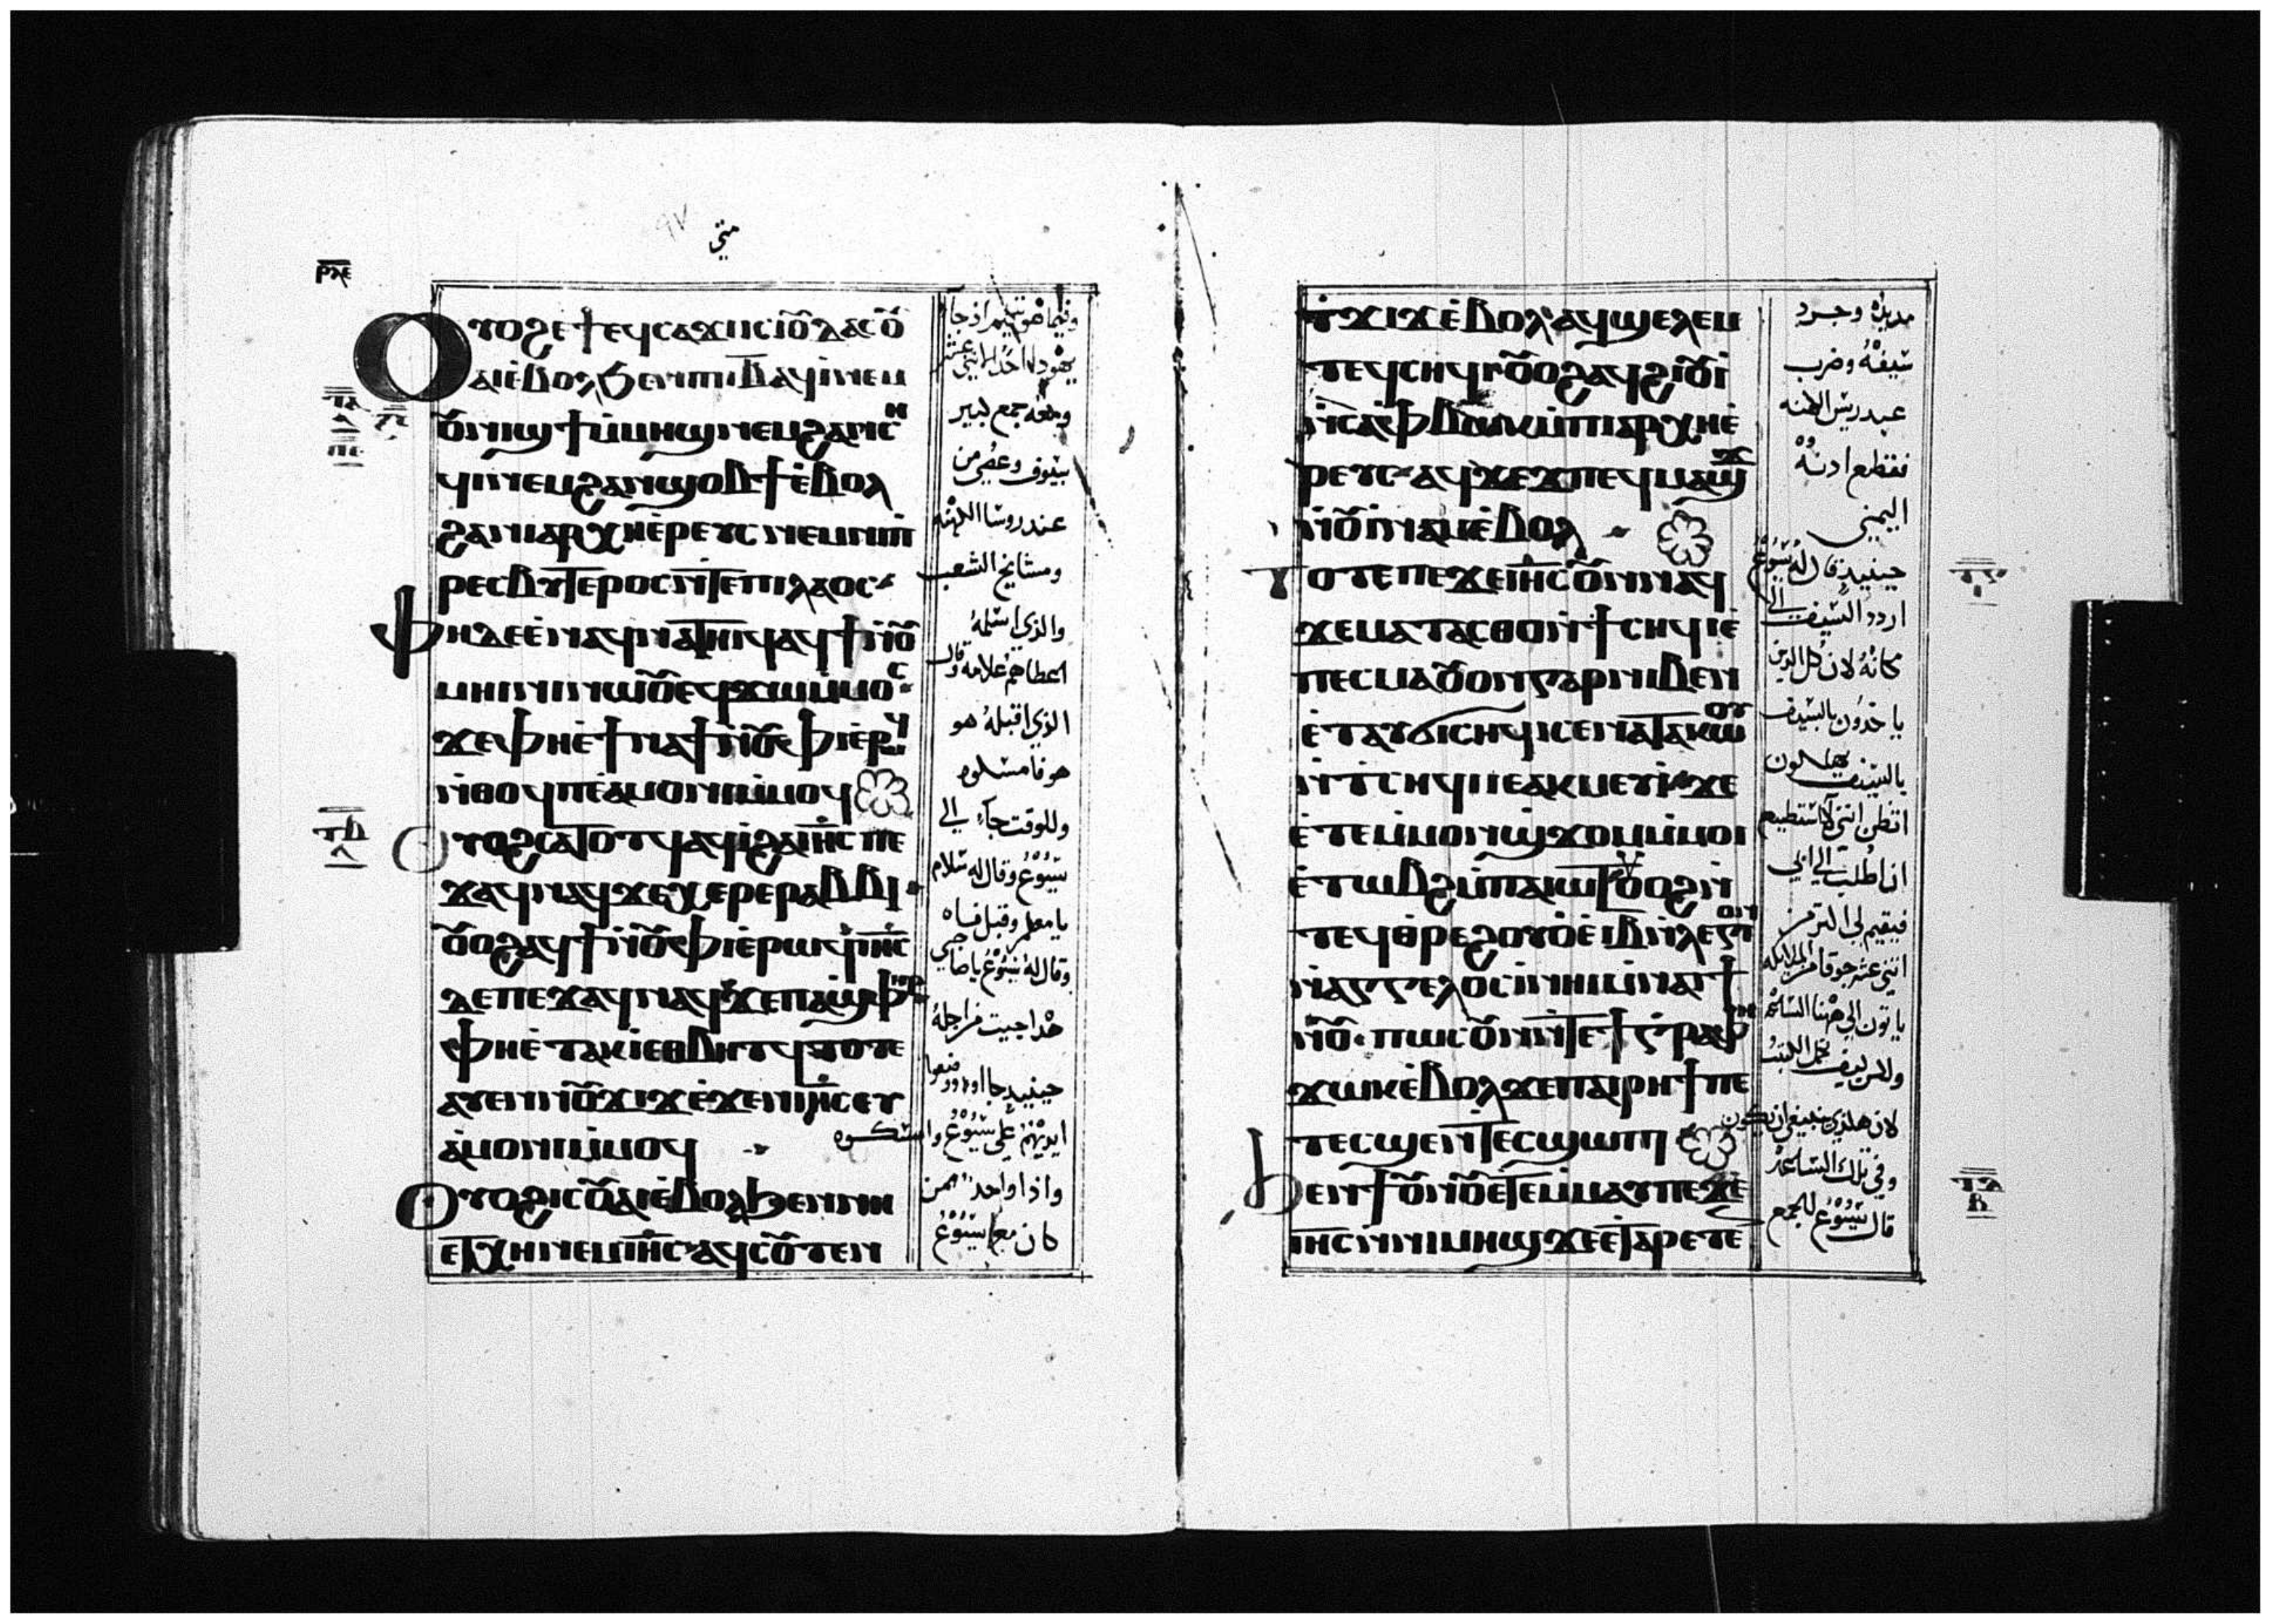 متي
ⲣⲗⲉ
ⲟⲩⲟϩ ⲉϯ ⲉϥⲥⲁϫⲓ ⲓⲥ ⲓⲟⲩⲇⲁⲥ ⲟⲩ
ⲁⲓ ⲉⲃⲟⲗ ϧⲉⲛ ⲡⲓⲓⲃ ⲁϥⲓ ⲛⲉⲙ
ⲟⲩⲛⲓϣϯ ⲙ̀ⲙⲏϣ ⲛⲉⲙ ϩⲁⲛⲥⲏ
ϥⲓ ⲛⲉⲙ ϩⲁⲛϣⲃⲟϯ ⲉ̀ⲃⲟⲗ
ϩⲁ ⲛⲓⲁⲣⲭⲏⲉ̀ⲣⲉⲩⲥ ⲛⲉⲙ ⲛⲓⲡ̀
ⲣⲉⲥⲃⲩⲧⲉⲣⲟⲥ ⲛ̀ⲧⲉ ⲡⲓⲗⲁⲟⲥ
ⲫⲏ ⲇⲉ ⲉ̀ⲛⲁϥⲛⲁⲧⲏⲓϥ ⲁϥϯ ⲛ̀ⲟⲩ
ⲙⲏⲓⲛⲓ ⲛⲱⲟⲩ ⲉϥϫⲱ ⲙ̀ⲙⲟⲥ
ϫⲉ ⲫⲏ ⲉ̀ϯⲛⲁϯ ⲛ̀ⲟⲩⲫⲓ ⲉ̀ⲣⲱϥ
ⲛ̀ⲑⲟϥ ⲡⲉ ⲁ̀ⲙⲟⲛⲓ ⲙ̀ⲙⲟϥ
ⲟⲩⲟϩ ⲥⲁⲧⲟⲧϥ ⲁϥⲓ̀ ϩⲁ ⲓⲏⲥ ⲡⲉ
ϫⲁϥ ⲛⲁϥ ϫⲉ ⲭⲉⲣⲉ ⲣⲁⲃⲃⲓ
ⲟⲩⲟϩ ⲁϥϯ ⲛ̀ⲟⲩⲫⲓ ⲉ̀ⲣⲱϥ ⲓⲏⲥ
ⲇⲉ ⲡⲉϫⲁϥ ⲛⲁϥ ϫⲉ ⲡⲁϣⲫⲏⲣ
ⲫⲏ ⲉ̀ⲧⲁⲕⲓ ⲉⲑⲃⲏⲧϥ ⲧⲟⲧⲉ
ⲁⲩⲉⲛ ⲛⲟⲩϫⲓϫ ⲉ̀ϫⲉⲛ ⲓⲏⲥ ⲉⲩ
ⲁ̀ⲙⲟⲛⲓ ⲙ̀ⲙⲟϥ
ⲟⲩⲟϩ ⲓⲥ ⲟⲩⲁⲓ ⲉ̀ⲃⲟⲗ ϧⲉⲛ ⲛⲏ
ⲉⲧⲭⲏ ⲛⲉⲙ ⲓⲏⲥ ⲁϥⲥⲟⲩⲧⲉⲛ
يهودا احد الاثني عشر
ومعه جمع كبير
بسيوف وعصي من
عند روسا الكهنه
ومشايخ الشعب
والذي اسلمه
اعطاهم علامه وقال
الذي اقبله هو
هو فامسكوه
وللوقت جاء الي
يسوع وقال له سلام
يا معلم وقبل فاه
وقال له يسوع يا صاحبي
هدا جيت من اجله
ايديهم علي يسوع وامسكوه
واذا واحد ممن
كان مع يسوع
ⲧϫⲓϫ ⲉ̀ⲃⲟⲗ ⲁϥϣⲉⲗⲉⲙ
ⲧⲉϥⲥⲏϥⲓ ⲟⲩⲟϩ ⲁϥϩⲓⲟⲩⲓ
ⲛ̀ⲥⲁ ⲫ̀ⲃⲱⲕ ⲙ̀ⲡⲓⲁⲣⲭⲏⲉ̀
ⲣⲉⲩⲥ ⲁϥϫⲉϫ ⲡⲉϥⲙⲁϣϫ
ⲛ̀ⲟⲩⲓ̀ⲛⲁⲙ ⲉ̀ⲃⲟⲗ
ⲧⲟⲧⲉ ⲡⲉϫⲉ ⲓⲏⲥ ⲟⲩⲛ ⲛⲁϥ
ϫⲉ ⲙⲁⲧⲁⲥⲑⲟ ⲛ̀ϯⲥⲏϥⲓ ⲉ̀
ⲡⲉⲥⲙⲁ ⲟⲩⲟⲛ ⲅⲁⲣ ⲛⲓⲃⲉⲛ
ⲉ̀ⲧⲁⲩϭⲓ ⲥⲏϥⲓ ⲥⲉⲛⲁⲧⲁⲕⲱⲟⲩ
ⲛ̀ⲧⲥⲏϥⲓ ⲓⲉ ⲁⲕⲙⲉⲩⲓ ϫⲉ
ⲉ̀ⲧⲉ ⲙ̀ⲙⲟⲛ ϣϫⲟⲙ ⲙ̀ⲙⲟⲓ
ⲉ̀ⲧⲱⲃϩ ⲙ̀ⲡⲁⲓⲱⲧ ⲟⲩⲟϩ ⲛ̀
ⲧⲉϥⲑ̀ⲣⲉ ϩⲟⲩⲟ̀ ⲉ̀ⲓⲃ ⲛ̀ⲗⲉⲅⲓⲱⲛ
ⲛ̀ⲁⲅⲅⲉⲗⲟⲥ ⲓ̀ ⲛⲏⲓ ⲙ̀ⲛⲁⲓ ϯ
ⲛⲟⲩ ⲡⲱⲥ ⲟⲩⲛ ⲛ̀ⲧⲉ ϯⲅ̀ⲣⲁⲫⲏ
ϫⲱⲕ ⲉ̀ⲃⲟⲗ ϫⲉ ⲡⲁⲓⲣⲏϯ ⲡⲉ
ⲧⲉⲥϣⲉ ⲛ̀ⲧⲉⲥϣⲱⲡⲓ
ϧⲉⲛ ϯⲟⲩⲛⲟⲩ ⲉⲧⲉⲙⲙⲁⲩ ⲡⲉϫⲉ
ⲓⲏⲥ ⲛ̀ⲛⲓⲙⲏϣ ϫⲉ ⲉ̀ⲧⲁⲣⲉⲧⲉ
مديده وجرد
سيفه وضرب
عبد ريس الكهنه
فقطع ادنه
اليمني
حينيد قال له يسوع
اردد السيف الي
مكانه لان كل الدين
ياخدون بالسيف
بالسيف يهلكون
اتظن انني لا استطيع
ان اطلب الي ابي
وفي تلك الساعه
قال يسوع للجمع